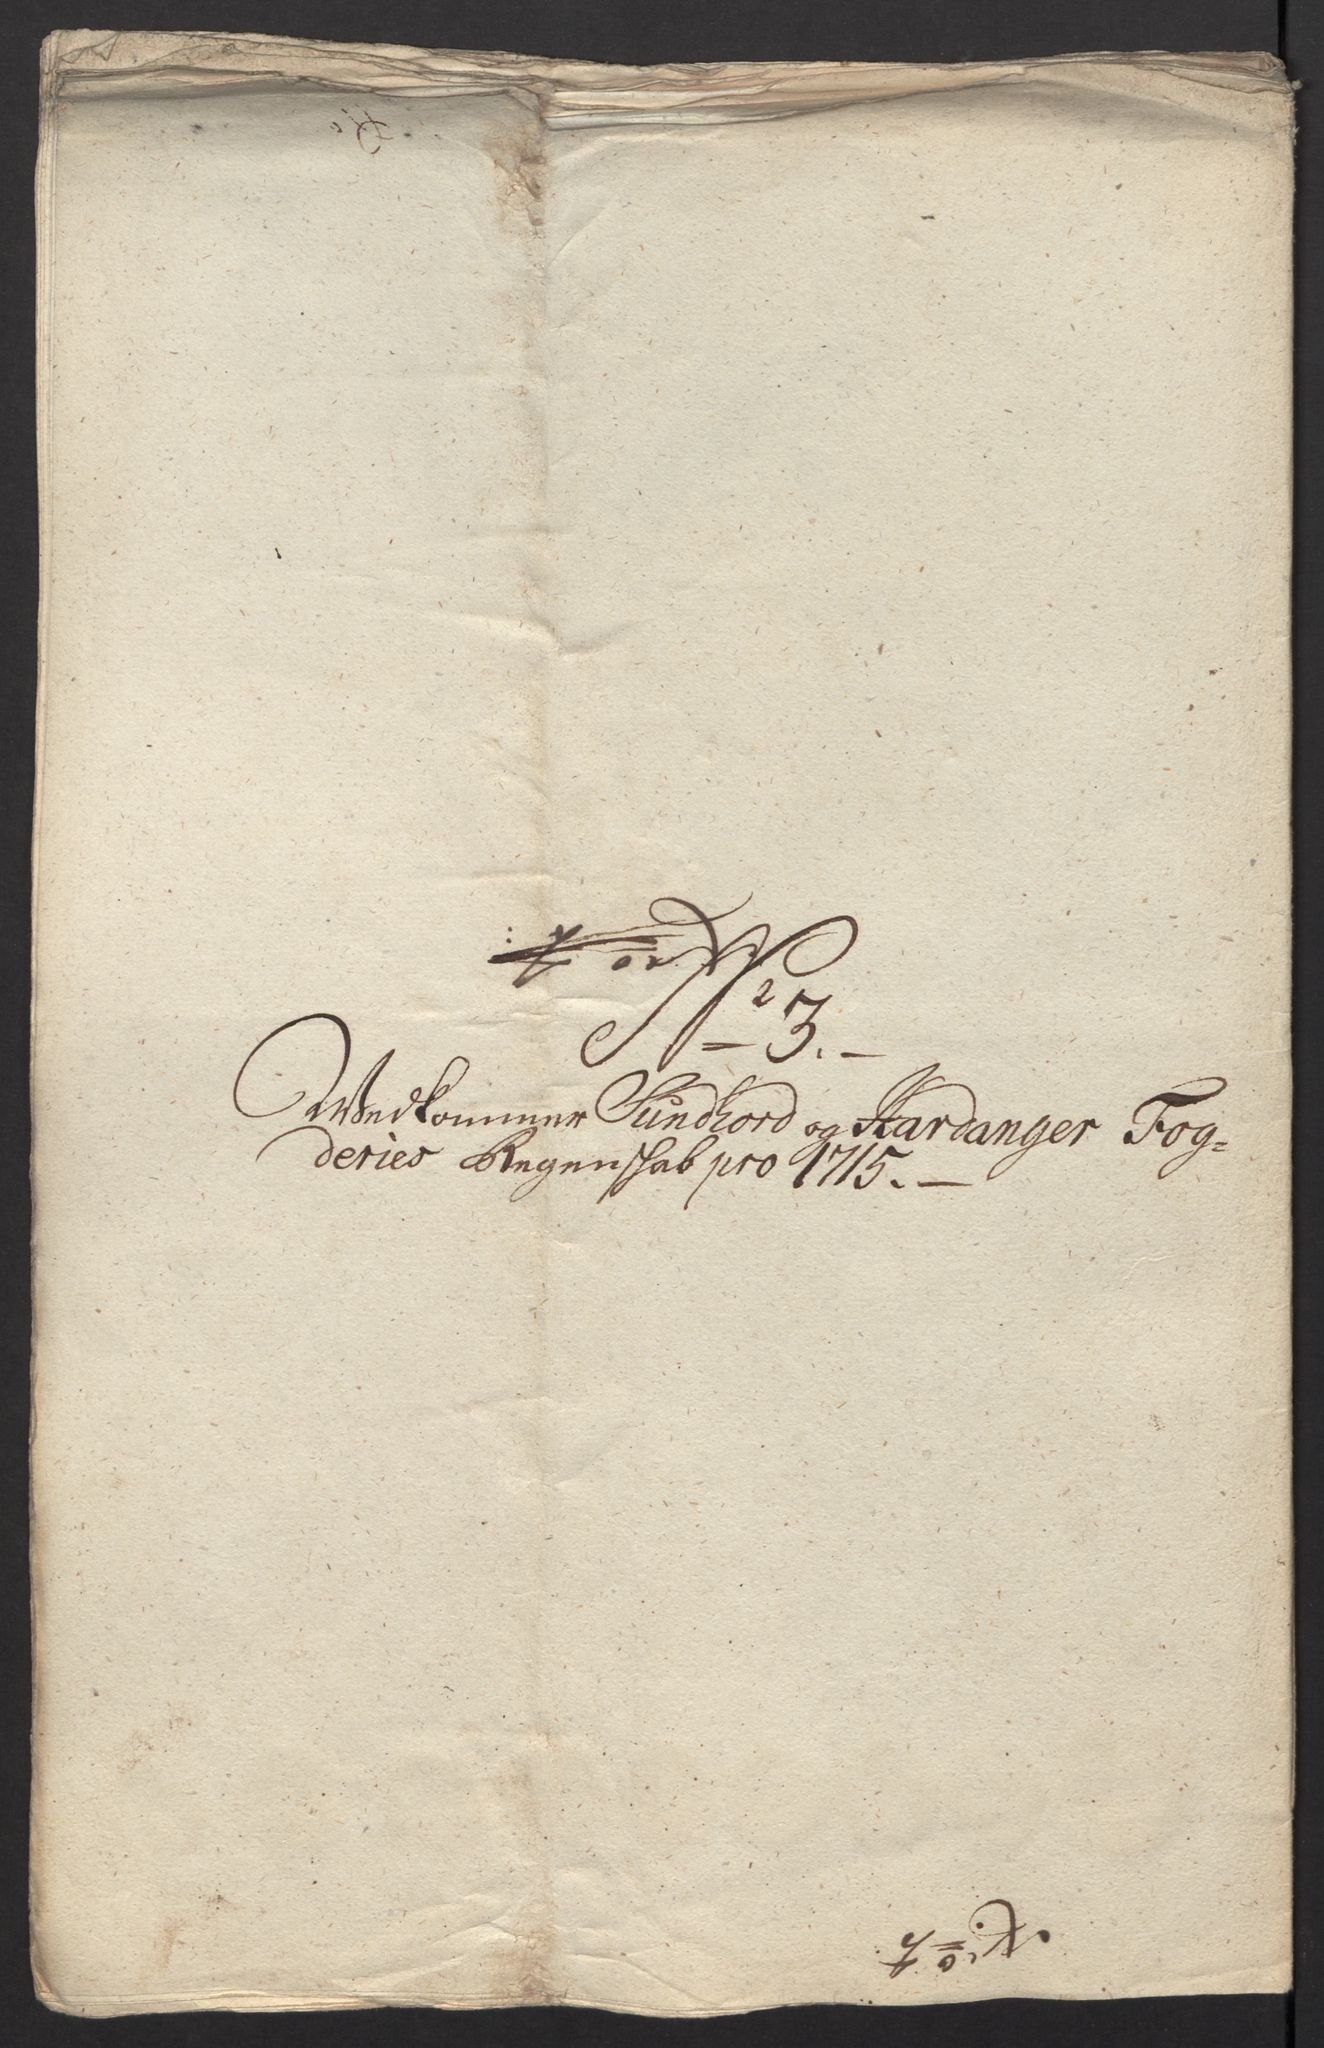 No 3.
Wedkommer Sundhord og Hardanger Fog=
deries Regenschab pro 1715.